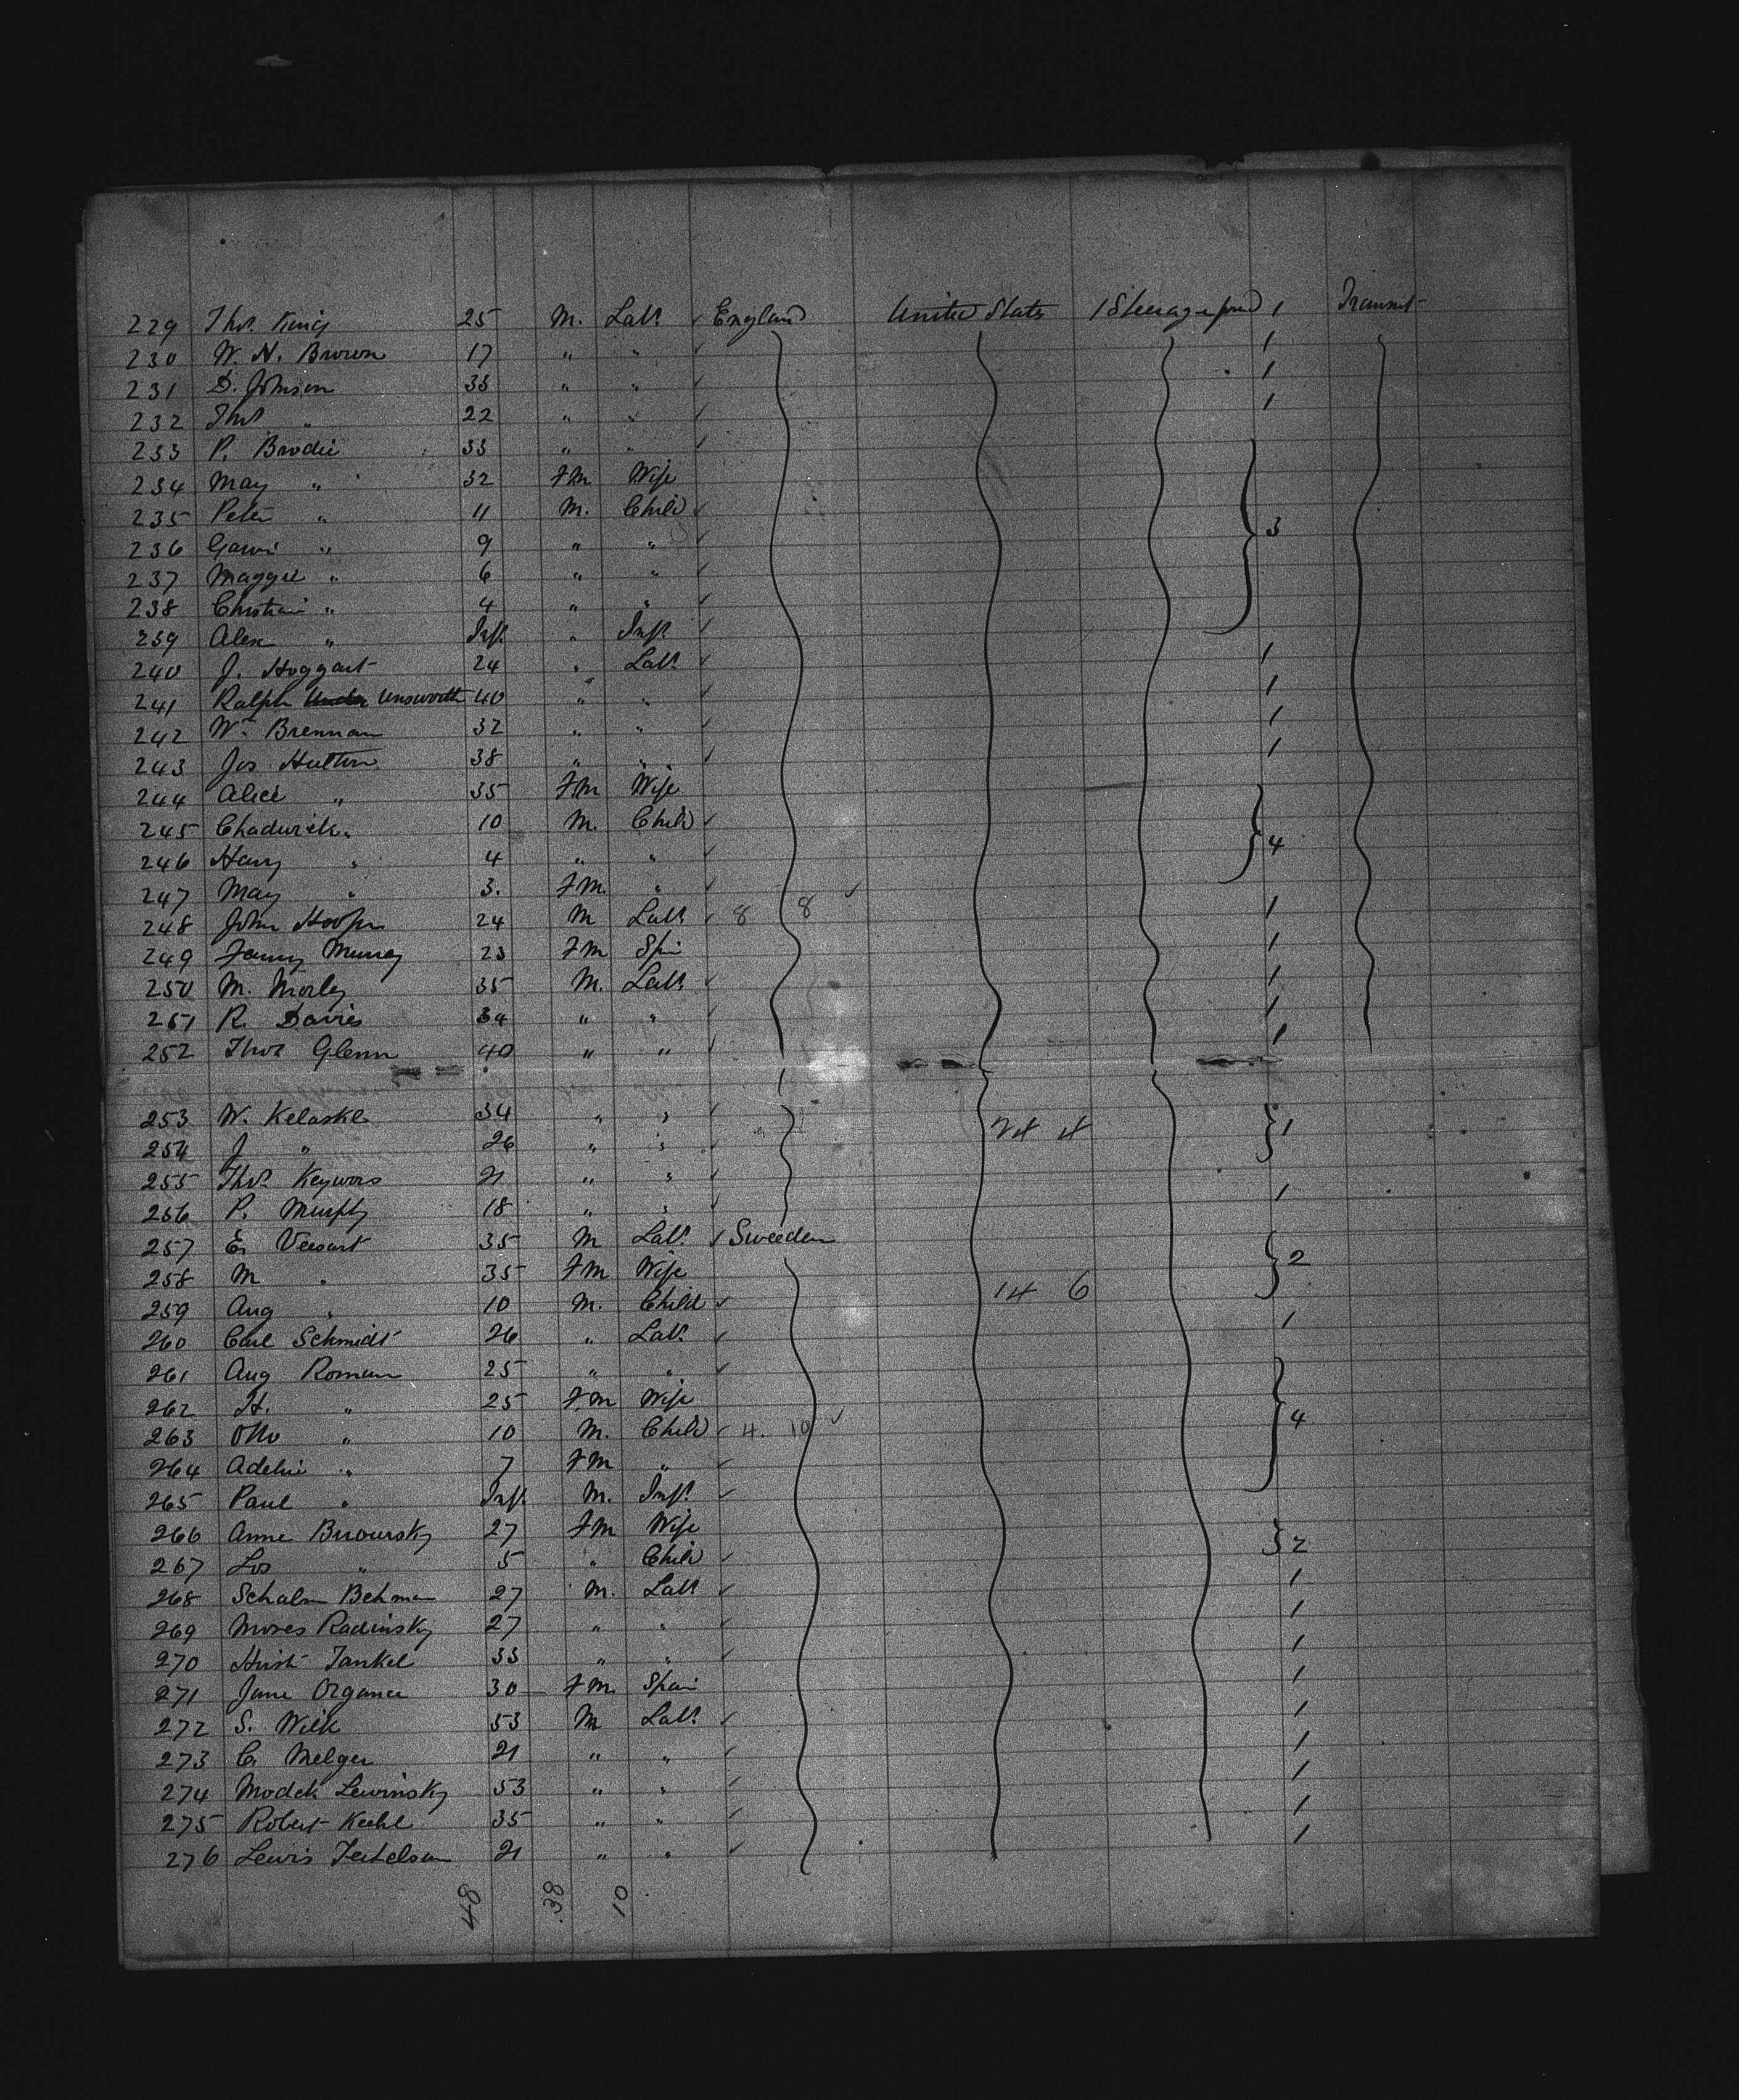 229 Thos King 25 M. Labr ✓ England United States 1 Steerage fwd 1 Transit
230 W. N. Brown 17 " " ✓ 1
231 D. Johnson 33 " " ✓ 1
232 Thos " 22 " " ✓ 1
233 P. Brodie 33 " " ✓
234 May " 32 Fm Wife
235 Peter " 11 M. Child ✓
236 " 9 " " ✓ 3
237 Maggie " 6 " " ✓
238 Christian " 4 " " ✓
239 Alex " Inft " Inft ✓
240 J. Hoggart 24 " Labr ✓ 1
241 Ralph Unsworth 40 " " ✓ 1
242 Wm Brennan 32 " " ✓ 1
243 Jos Hutton 38 " " ✓ 1
244 Alice " 35 Fm Wife
245 Chadwick " 10 M. Child ✓
246 Harry " 4 " " ✓ 4
247 May " 3. Fm " ✓ ✓
248 John Hooper 24 M Labr ✓ 8 8 1
249 Fanny Murray 23 Fm Spi 1
250 M. Morley 35 M. Labr ✓ 1
251 R. Davies 34 " " ✓ 1
252 Thos Glenn 40 " " ✓ 1
253 W. Kelaske 34 " " ✓ 24 4 1
254 J " 26 " " ✓
255 Thos Keywors 21 " " ✓ 1
256 P. Murphy 18 " " ✓
257 E. 35 M Labr ✓ Sweeden 2
258 M " 35 Fm Wife
259 Aug " 10 M. Child ✓ 14 6
260 Carl Schmidt 26 " Labr ✓ 1
261 Aug Roman 25 " " ✓
262 H. " 25 Fm Wife
263 Otto " 10 M. Child ✓ 4. 10 ✓ 4
264 Adeline " 7 Fm " ✓
265 Paul " Inft M. Inft ✓
266 Anne 27 Fm Wife
267 Los " 5 " Child ✓ 2
268 Schalm Behman 27 M. Labr ✓ 1
269 Moses Radinsky 27 " " ✓ 1
270 Hirsh Jankel 33 " " ✓ 1
271 Jane Organer 30 Fm. Spin 1
272 S. Wilk 53 M Labr ✓ 1
273 C. Melger 21 " " ✓ 1
274 Modek Lewinsky 53 " " ✓ 1
275 Robert Keehl 35 " " ✓ 1
276 Lewis Teitelson 21 " " ✓ 1
48 38 10